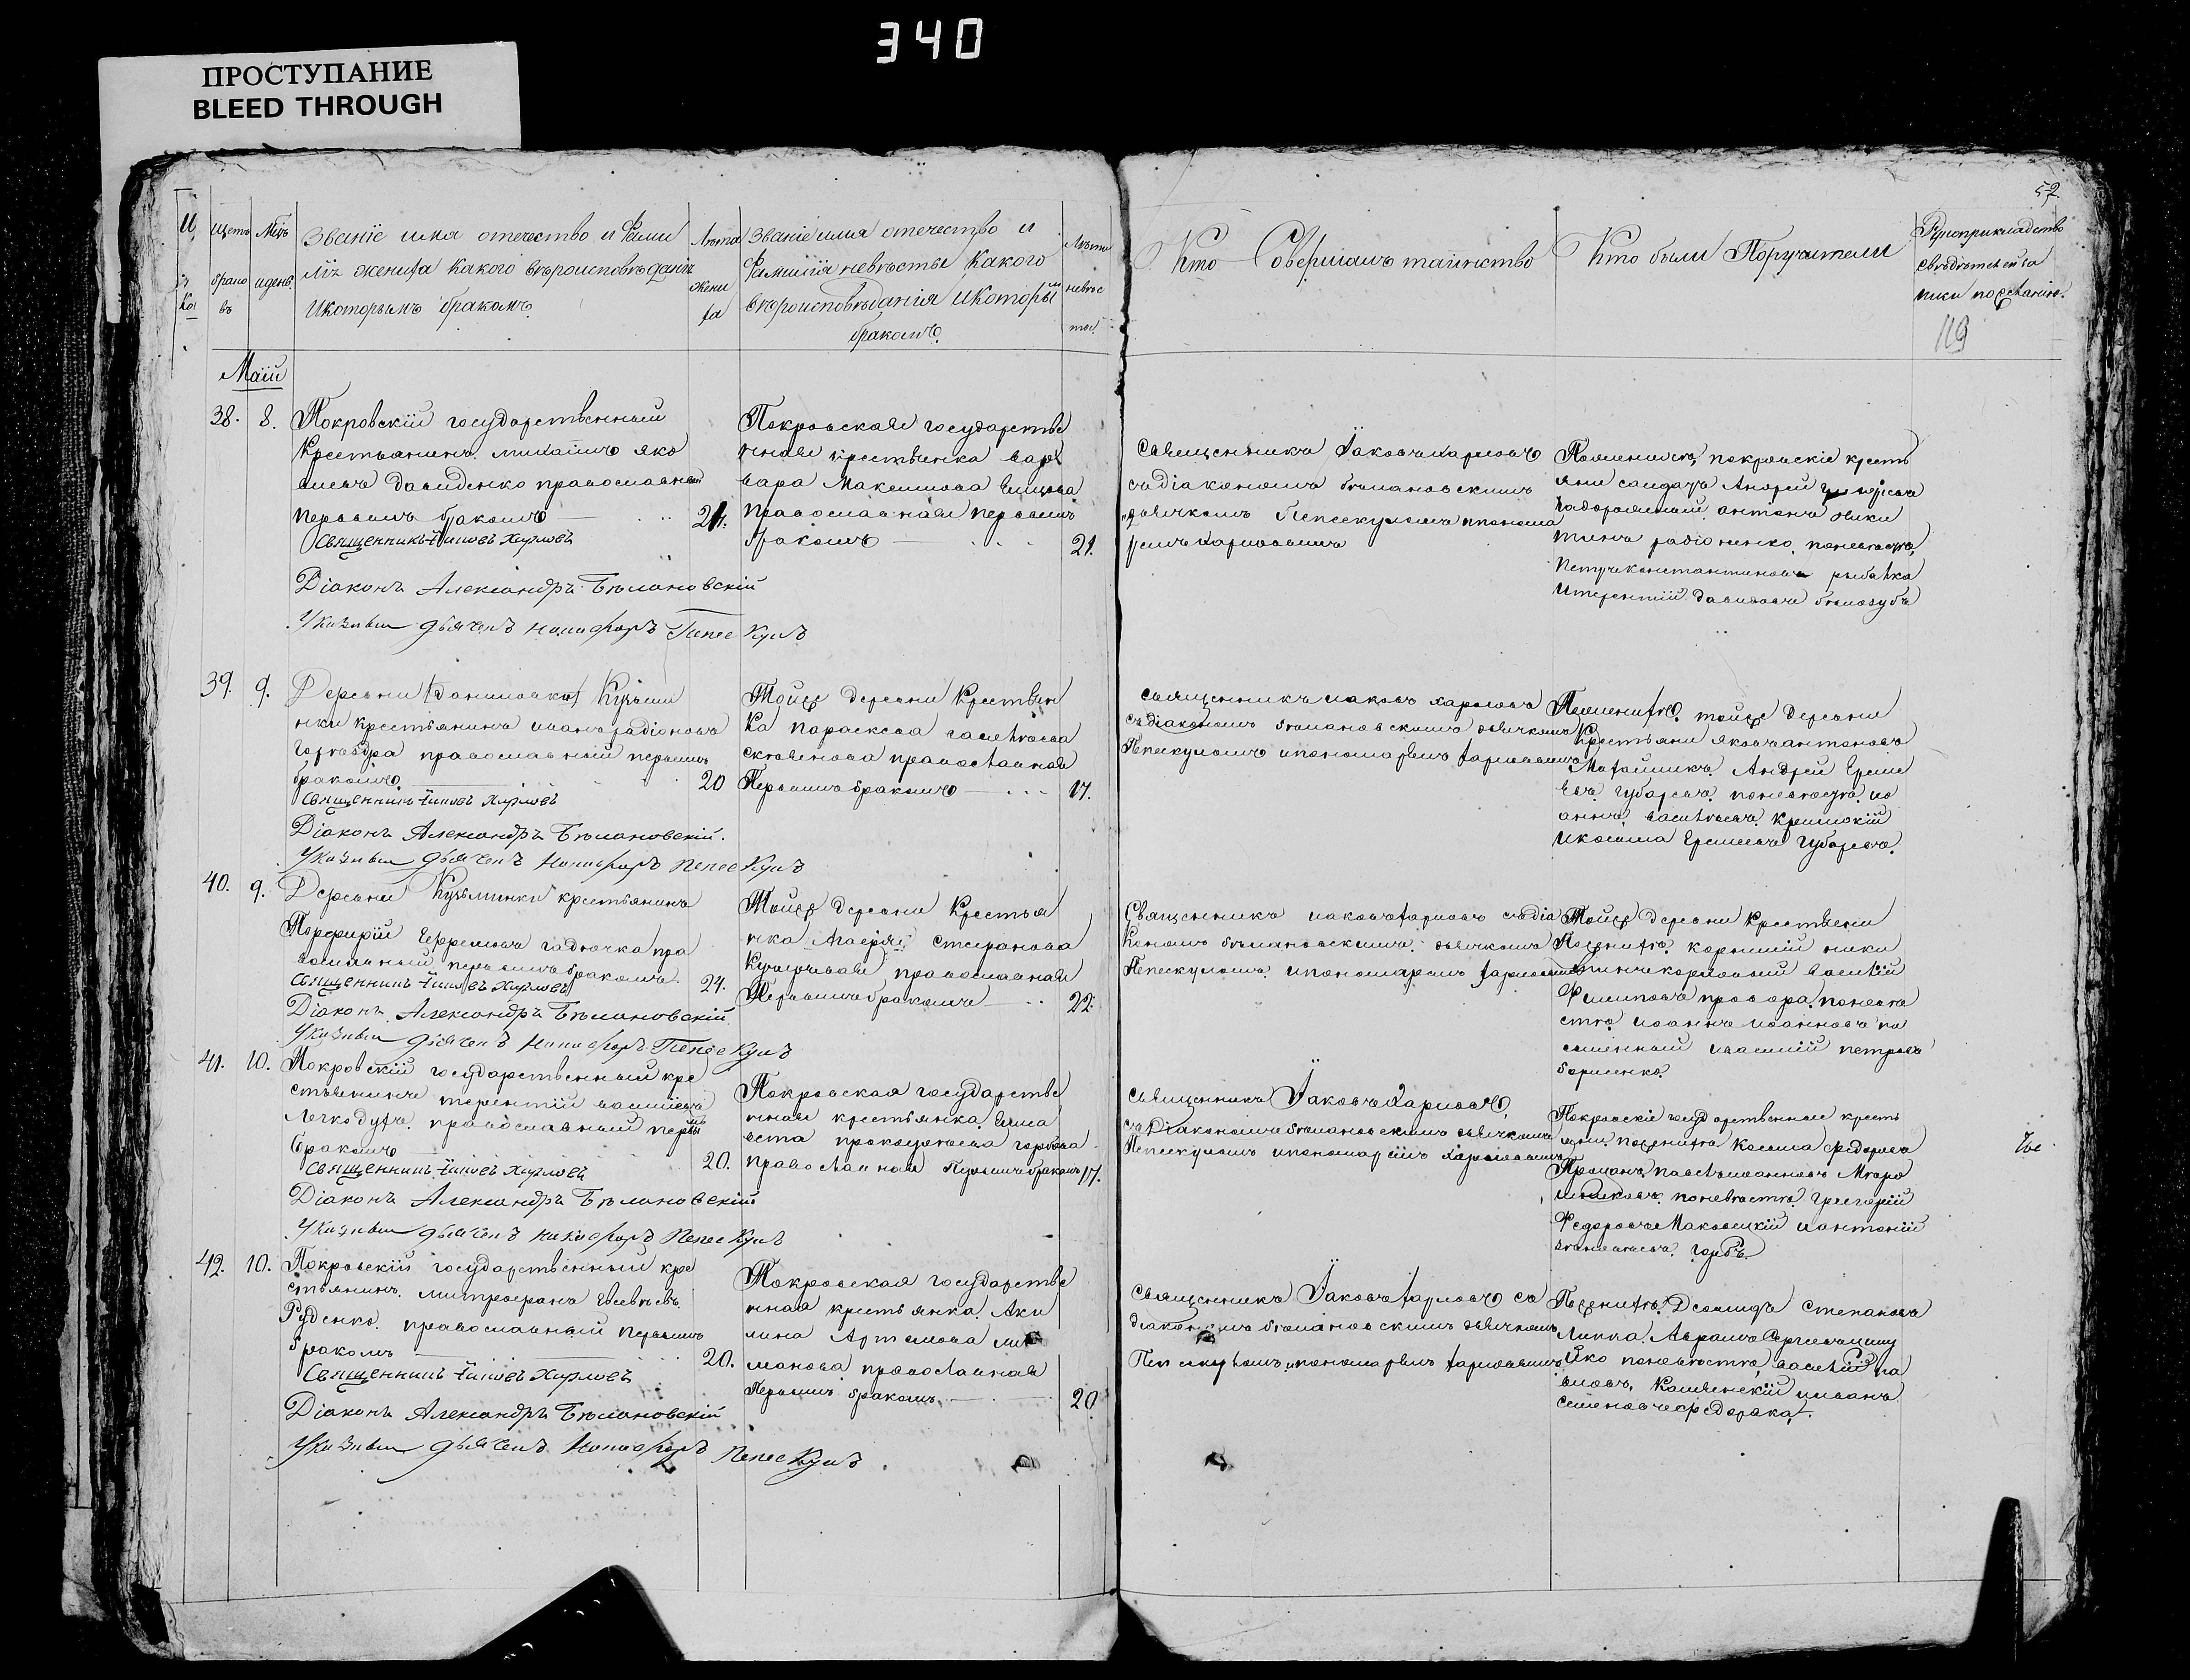 340
ПРОСТУПАНИЕ
BLEED THROUGH
52
щетъ брако въ
Мцъ и день
Званіе имя отечество и Фами
лія жениха какого вѣроисповѣданія
и которымъ бракомъ.
Лѣта жени ха
Званіе имя отечество и
Фамилія невѣсты какого
вѣроисповѣданія и которымъ
бракомъ.
Лѣта невѣс ты.
Кто Совершалъ таинство
Кто были Поручители
Рукоприкладство
свидѣтелей за
писи по желанію.
119
Маій
38. 8.
Покровскій государственный
Крестьянинъ михаилъ яко
влевъ давиденко православный
первымъ бракомъ
21.
Священникъ Іаковъ Харловъ
Діаконъ Александръ Бѣлановскій
Указный дьячекъ Никифоръ Пепескулъ
Покровская государстве
нная крестьянка вар
вара Максимова
православная первымъ
бракомъ
21.
Священникъ Іаковъ Харловъ
съ діакономъ бѣлановскимъ
дьячкомъ Пепескуломъ и понома
ремъ харловымъ
По женихѣ, покровскіе кресть
яне Андрей
антонъ ники
тинъ радіоненко, по невѣстѣ,
Петръ Константиновъ рыбалка
и терентій давидовъ бѣлозубъ
39. 9.
Деревни (даниловки) Кузьми
нки крестьянинъ иванъ радіоновъ
православный первымъ
бракомъ
20
Священникъ Іаковъ Харловъ
Діаконъ Александръ Бѣлановскій.
Указный дьячекъ Никифоръ Пепескулъ
Тойже деревни Крестьян
ка Параскева
православная
Первымъ бракомъ
17.
священникъ иаковъ харловъ
съ діакономъ бѣлановскимъ дьячкомъ
Пепескуломъ и пономаремъ харловымъ
По женихѣ, тойже деревни
Крестьяне яковъ антоновъ
Андрей Ереме
евъ губаревъ, по невѣстѣ, ио
аннъ васильевъ
и косьма Еремеевъ Губаревъ.
40. 9.
Деревни Кузьминки крестьянинъ
Порфирій Ефремовъ гадючка пра
вославный первымъ бракомъ
24.
Священникъ Іаковъ Харловъ
Діаконъ Александръ Бѣлановскій
Указный дьячекъ Никифоръ Пепескулъ
Тойже деревни Крестья
нка
православная
Первымъ бракомъ
22.
Священникъ иаковъ харловъ съ діа
кономъ бѣлановскимъ дьячкомъ
Пепескуломъ и пономаремъ харловымъ
Тойже деревни крестьяни
По женихѣ, корнилій ники
тинъ василій
Филиповъ по невѣ
стѣ, иоаннъ иоанновъ
и василій петровъ
борисенко.
41. 10.
Покровскій государственный кре
стьянинъ терентій васильевъ
Легкодухъ, православный первымъ
бракомъ
20.
Священникъ Іаковъ Харловъ
Діаконъ Александръ Бѣлановскій
Указный дьячекъ Никифоръ Пепескулъ
Покровская государстве
нная крестьянка, Елиса
вета прокофьева горбова
православная Первымъ бракомъ
17.
Священникъ Іаковъ Харловъ,
съ Діакономъ бѣлановскимъ дьячкомъ
Пепескуломъ и пономаремъ харловымъ
Покровскіе государственные кресть
яне, по женихѣ Косьма федоровъ
Проценъ, павелъ ивановъ
по невѣстѣ, григорій
Федоровъ Маковецкій и антоній
горбъ.
42. 10.
Покровскій государственный кре
стьянинъ. митрофанъ Евсевьевъ
Руденко. православный Первымъ
бракомъ
20.
Священникъ Іаковъ Харловъ
Діаконъ Александръ Бѣлановскій
Указный дьячекъ Никифоръ Пепескулъ
Покровская государстве
нная крестьянка. Аки
лина Артемова
православная
Первымъ бракомъ,
20
Священникъ Іаковъ харловъ съ
діакономъ бѣлановскимъ дьячкомъ
Пепескуломъ и пономаремъ харловымъ
По женихѣ, Деомидъ Степановъ
Липка. Аврамъ
по невѣстѣ, василій па
вловъ, Каменскій и иванъ
семеновъ федорака.